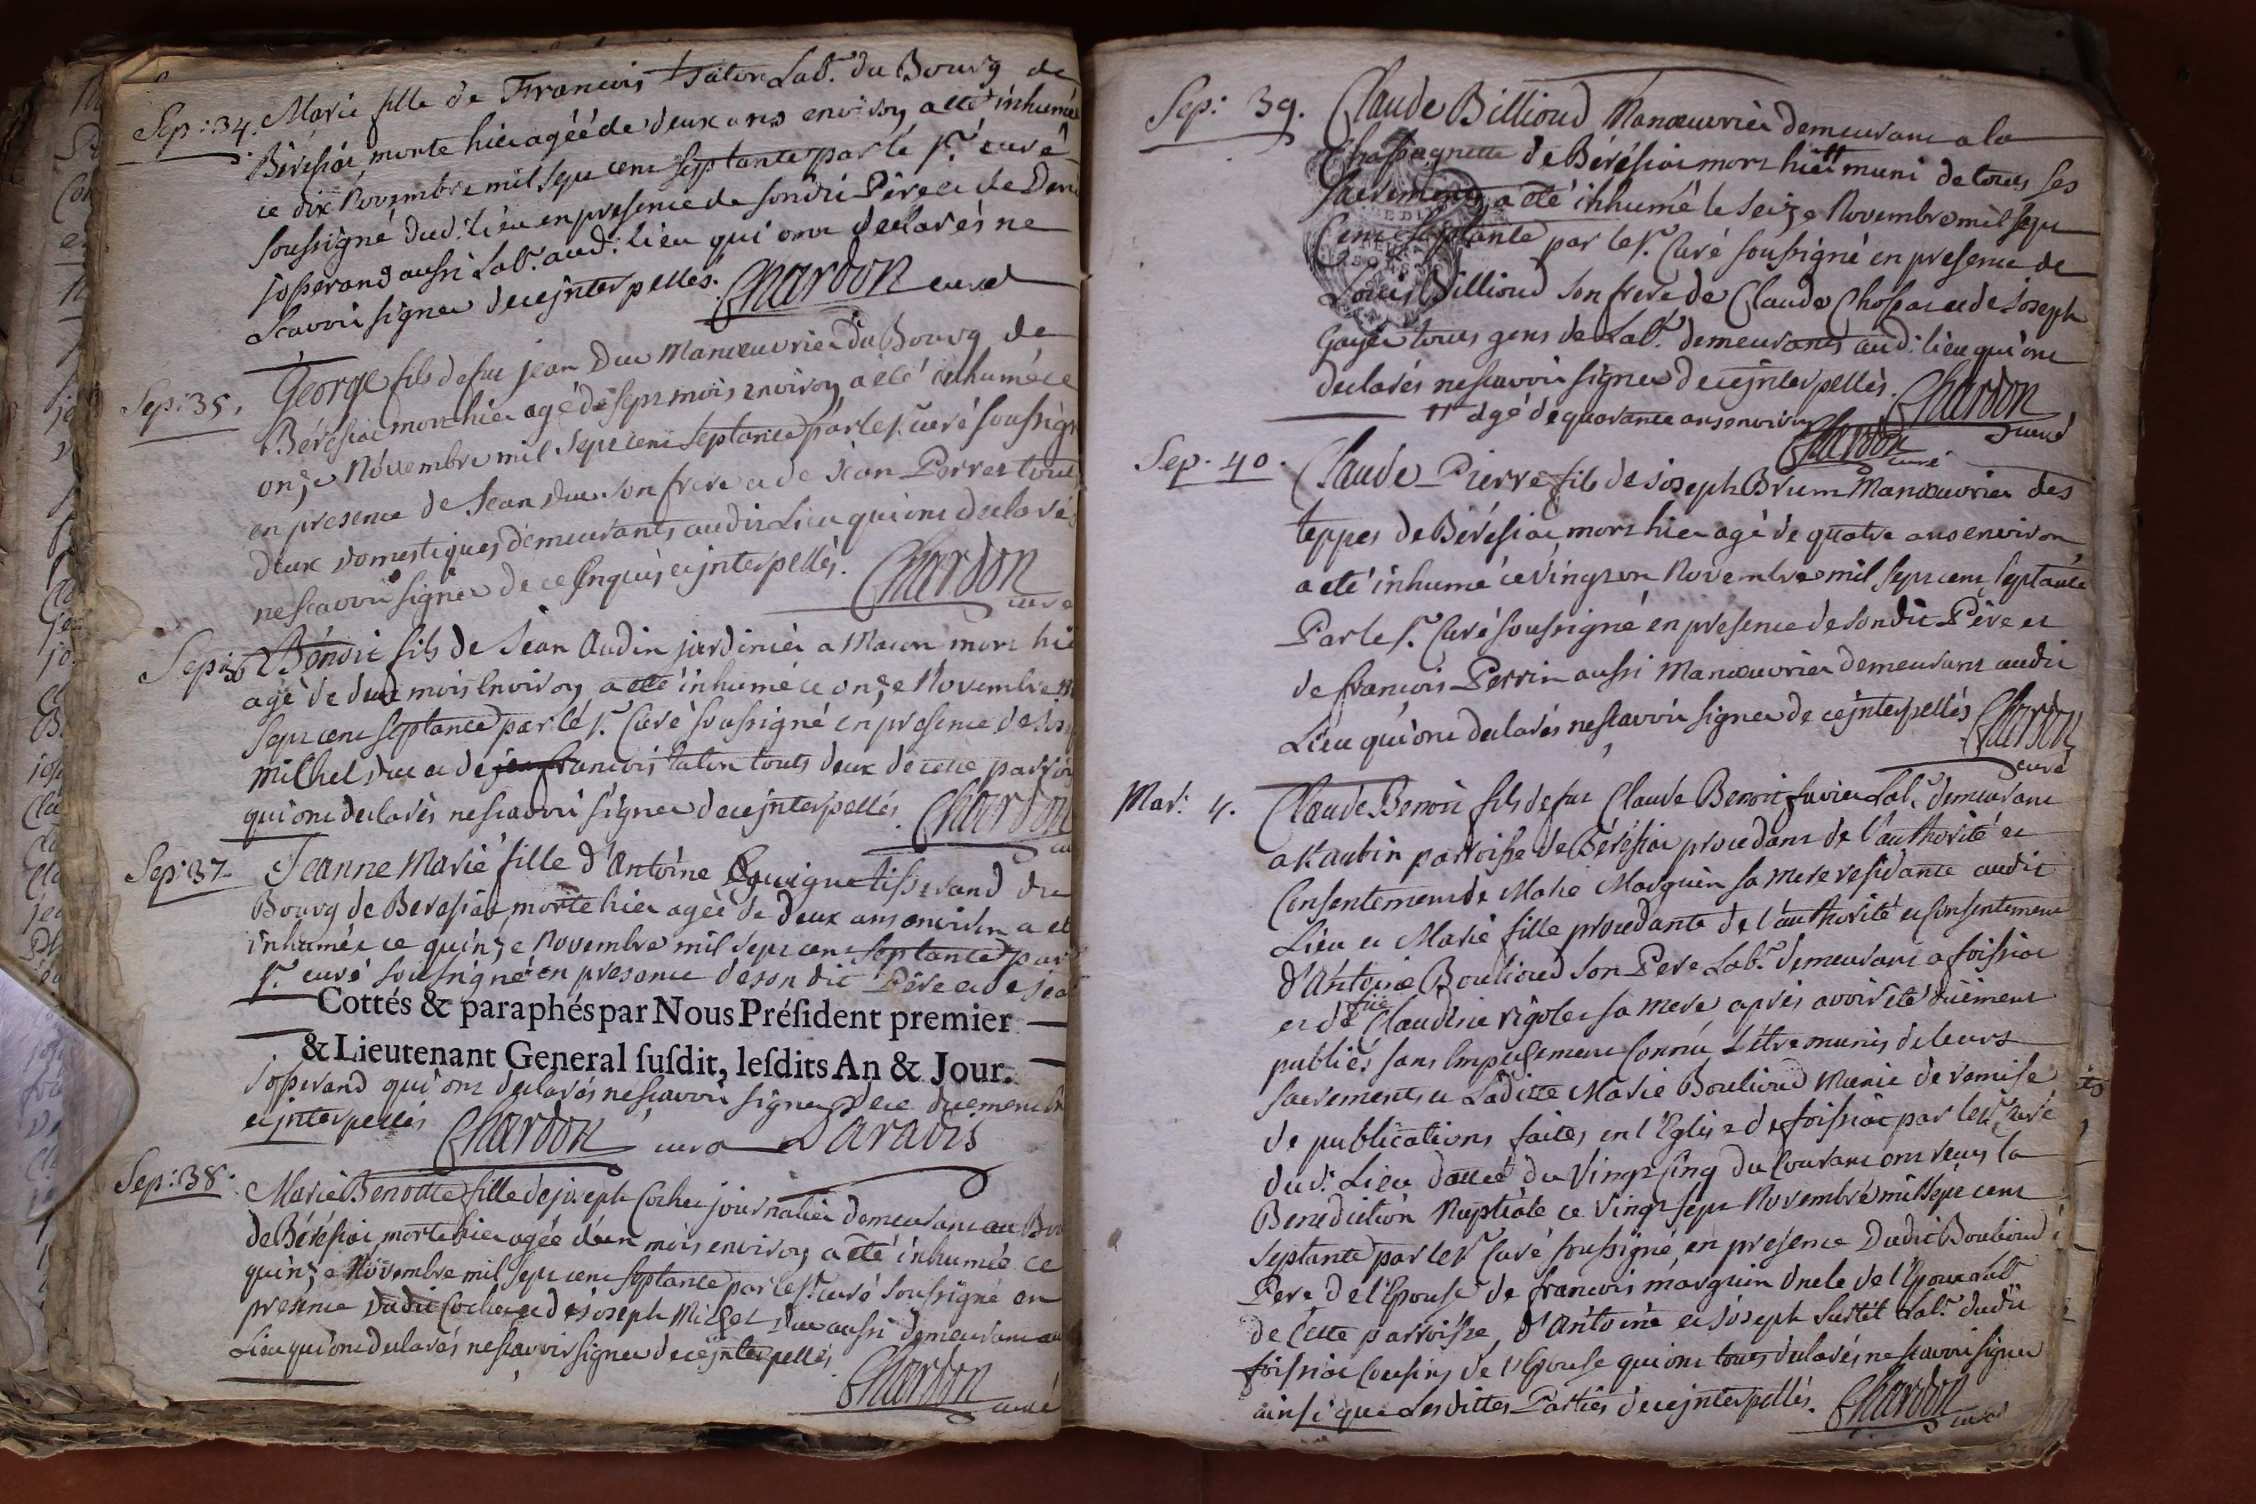 Sep: 34. Marie fille de François Laton Lab.r du Bourg de
Béréziat, morte hier agéé de deux ans environ a été inhumée
ce dix Novembre mil sept cent septante par le s.r curé
soussigné dud: Lieu en presence de sondit Père et de
josserand aussi Lab.r aud: lieu qui ont declarés ne
scavoir signer de ce jnterpellés. Chardon curé
Sep: 35. George fils de feu jean Duc Manœuvrier du Bourg de
Béréziat mort hier agé de sept mois environ a été inhumé ce
onze Novembre mil sept cent septante par le s.r curé soussigné
en presence de Jean Duc son frere et de Jean Perret tous
deux domestiques demeurants audit Lieu qui ont declarés
ne scavoir signer de ce Enquis et jnterpellés. Chardon
curé
Sep: 36 Bénoit fils de Jean Audin jardinier a Macon mort hier
agé de deux mois Environ a été inhumé ce onze Novembre
sept cent septante par le s.r Curé soussigné en presence de
Michel Duc et de françois laton touts deux de cette parroisse
qui ont declarés ne scavoir signer de ce jnterpellés. Chardon
Sep: 37 Jeanne Marie fille d'Antoine Guigue tisserand du
Bourg de Beresiat, morte hier agée de deux ans environ a été
inhumée ce quinze Novembre mil sept cent septante par
s.r curé soussigné en presence de son dit Père et de jean
Cottés & paraphés par Nous Préſident premier
& Lieutenant General ſuſdit, leſdits An & Jour.
josserand qui ont declarés ne scavoir signer de ce duement
et jnterpellés Chardon curé Daravis
Sep: 38. Marie Benoitte fille de joseph Cochet journalier demeurant au
de Béréziat, morte hier agée d'un mois environ a été inhumée ce
quinze Novembre mil sept cent septante par le s.r curé soussigné en
presence dudit Cochet et de joseph Michel Duc aussi demeurant
Lieu qui ont declarés ne scavoir signer de ce jnterpellés
Chardon curé
Sep: 39. Claude Billioud Manœuvrier demeurant a la
Chassagnette de Béréziat mort hier muni de tous ses
sacrements a été inhumé le seize Novembre mil sept
Cent septante par le s.r Curé soussigné en presence de
Louis Billioud son frere de Claude Chossat et de joseph
Gayet tous gens de Lab.r demeurants aud: lieu qui ont
declarés ne scavoir signer de ce jnterpellés. Chardon
agé de quarante ans environ Chardon curé
curé
Sep. 40. Claude Pierre fils de joseph Brun Manœuvrier des
teppes de Béréziat, mort hier agé de quatre ans environ
a été inhumé ce vingt un Novembre mil sept cent septante
Par le s.r Curé soussigné en presence de sondit Père et
de françois Perrin aussi Manœuvrier demeurant audit
Lieu qui ont declarés ne scavoir signer de ce jnterpellés Chardon
curé
Mar: 4. Claude Benoit fils de feu Claude Benoit favier Lab.r demeurant
a s.t aubin parroisse de Béréziat procedant de l'authorité et
Consentement de Marie Marguin sa mere residante audit
Lieu et Marie fille procedante de l'authorité et Consentement
d'Antoine Boulioud son Pere Lab.r demeurant a foissiat
et de Claudine rigolet sa mere après avoir été duëment
publiés sans Empechement Connu & être munis de leurs
sacrements et Laditte Marie Boulioud Munie de remise
de publications faites en l'Eglise de foissiat par le s.r curé
dud: Lieu dattée du Vingt Cinq du Courant ont reçus la
Benediction Nuptiale ce Vingt sept Novembre mil sept cent
septante par le s.r Curé soussigné, en presence Dudit Boulioud
Pere de l'Epouse de francois marguin Oncle de l'Epoux Lab.r
de Cette parroisse, d'Antoine et joseph Lab.r dudit
foissiat Cousins de l'Epouse qui ont tous declarés ne scavoir signer
ainsi que Les dittes Parties de ce jnterpellés. Chardon
curé